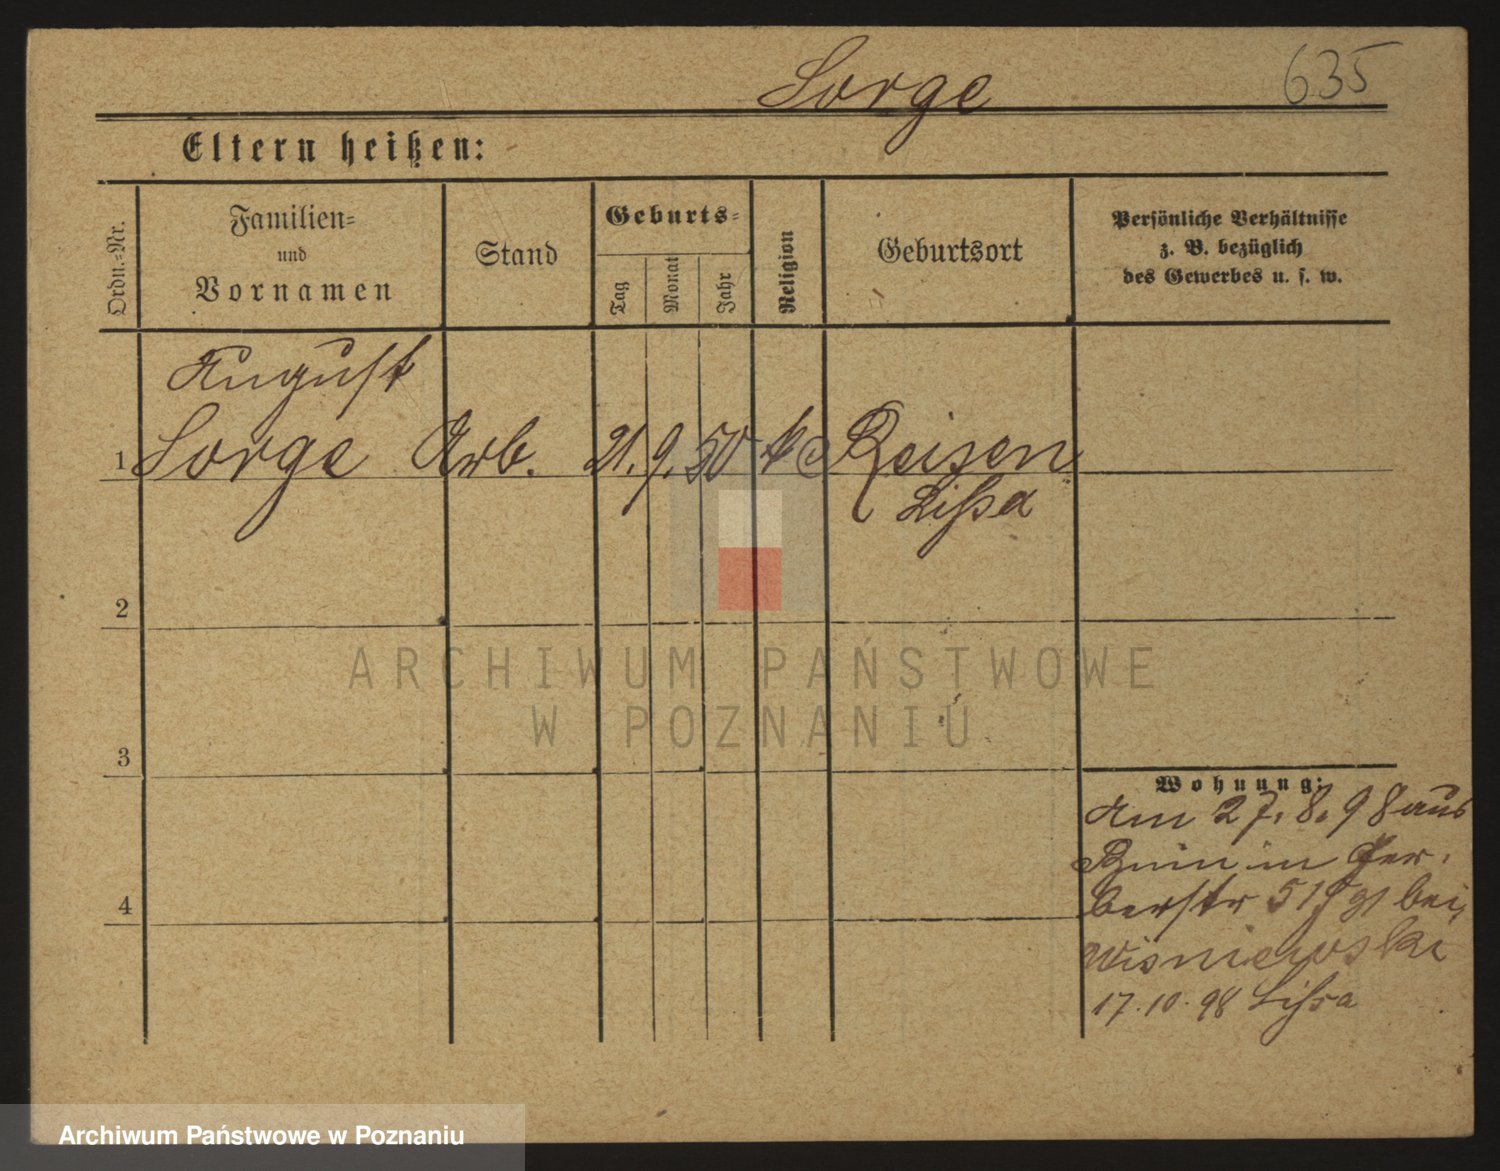 Sorge 635
Eltern heißen:
Ordn.-Nr.
Familien-
und
Vornamen
Stand
Geburts-
Tag
Monat
Jahr
Religion
Geburtsort
Persönliche Verhältnisse
z. B. bezüglich
des Gewerbes u. s. w.
August
1 Sorge Arb. 21. 9. 50 Reisen
Lissa
2
ARCHIWUM PAŃSTWOWE
W POZNANIU
3
Wohnung:
Am 27. 8. 98 aus
Bnin in Ger-
berstr 51 bei
Wisniewski
17. 10. 98 Lissa
4
Archiwum Państwowe w Poznaniu